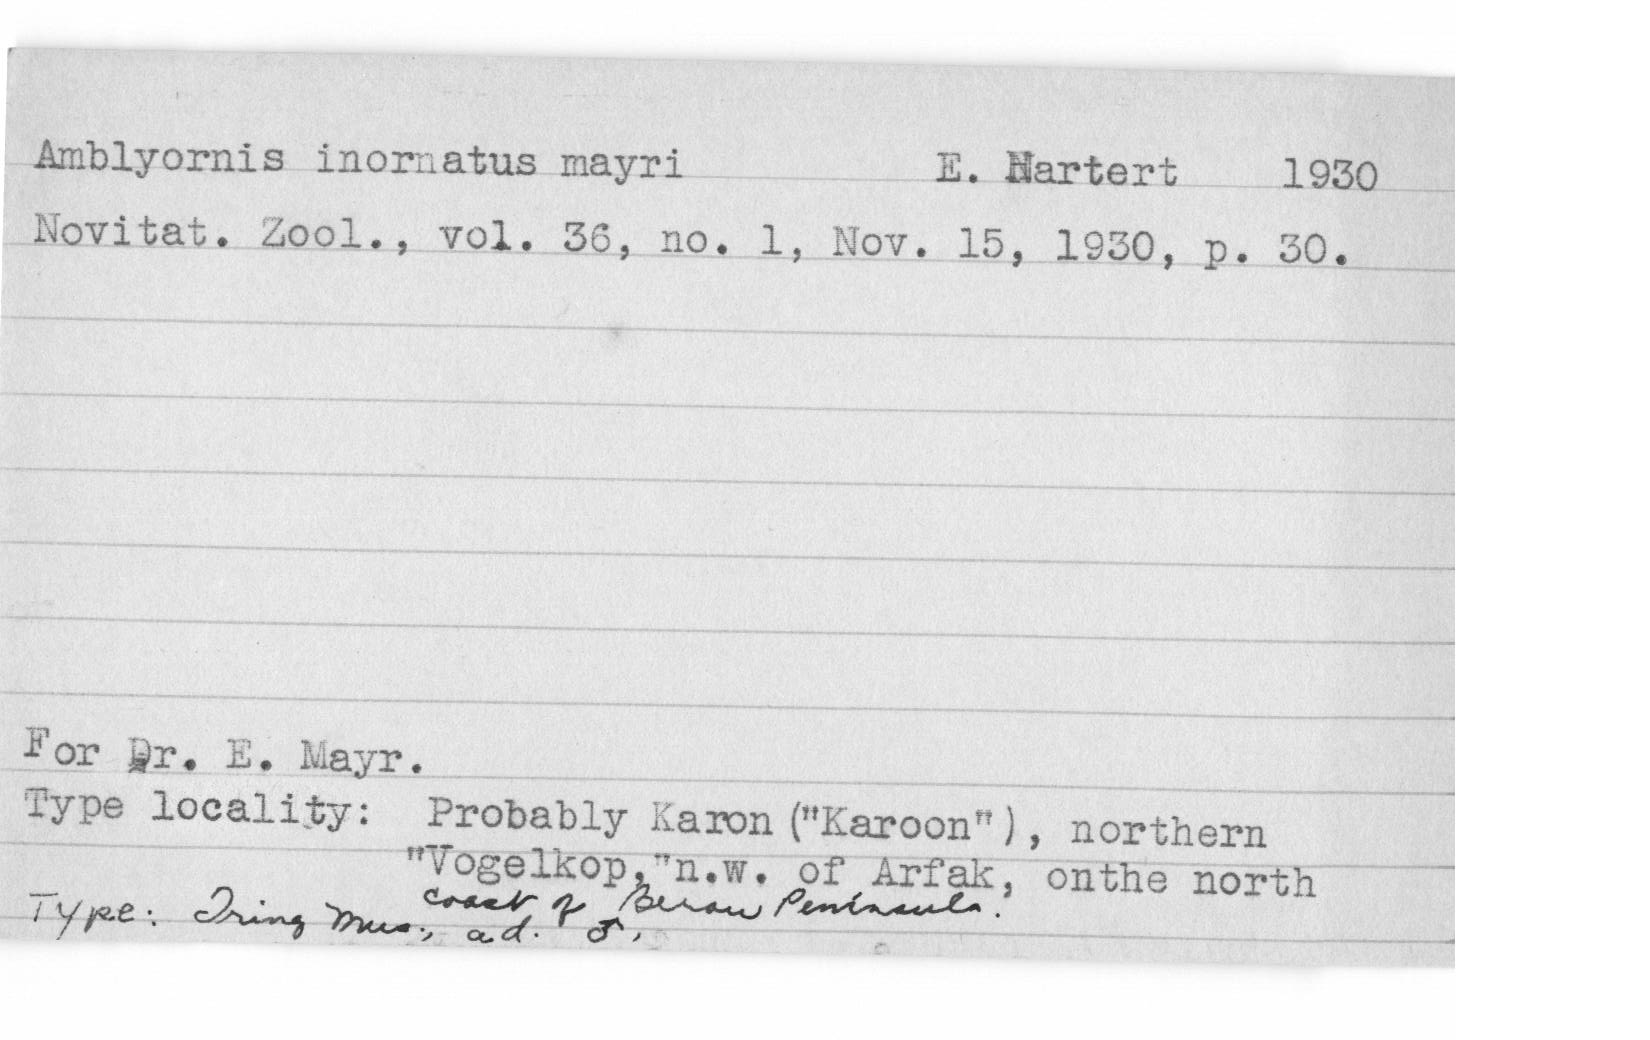 Amblyornis inornatus mayri E. Hartert 1930
Novitat. Zool., vol. 36, no. 1, Nov. 15, 1930, p. 30.
For Dr. E. Mayr.
Type locality: Probably Karon ("Karoon"), northern
"Vogelkop,"n.w. of Arfak, onthe north
coast of Berau Peninsula.
Type: Tring Mus., ad. ♂,